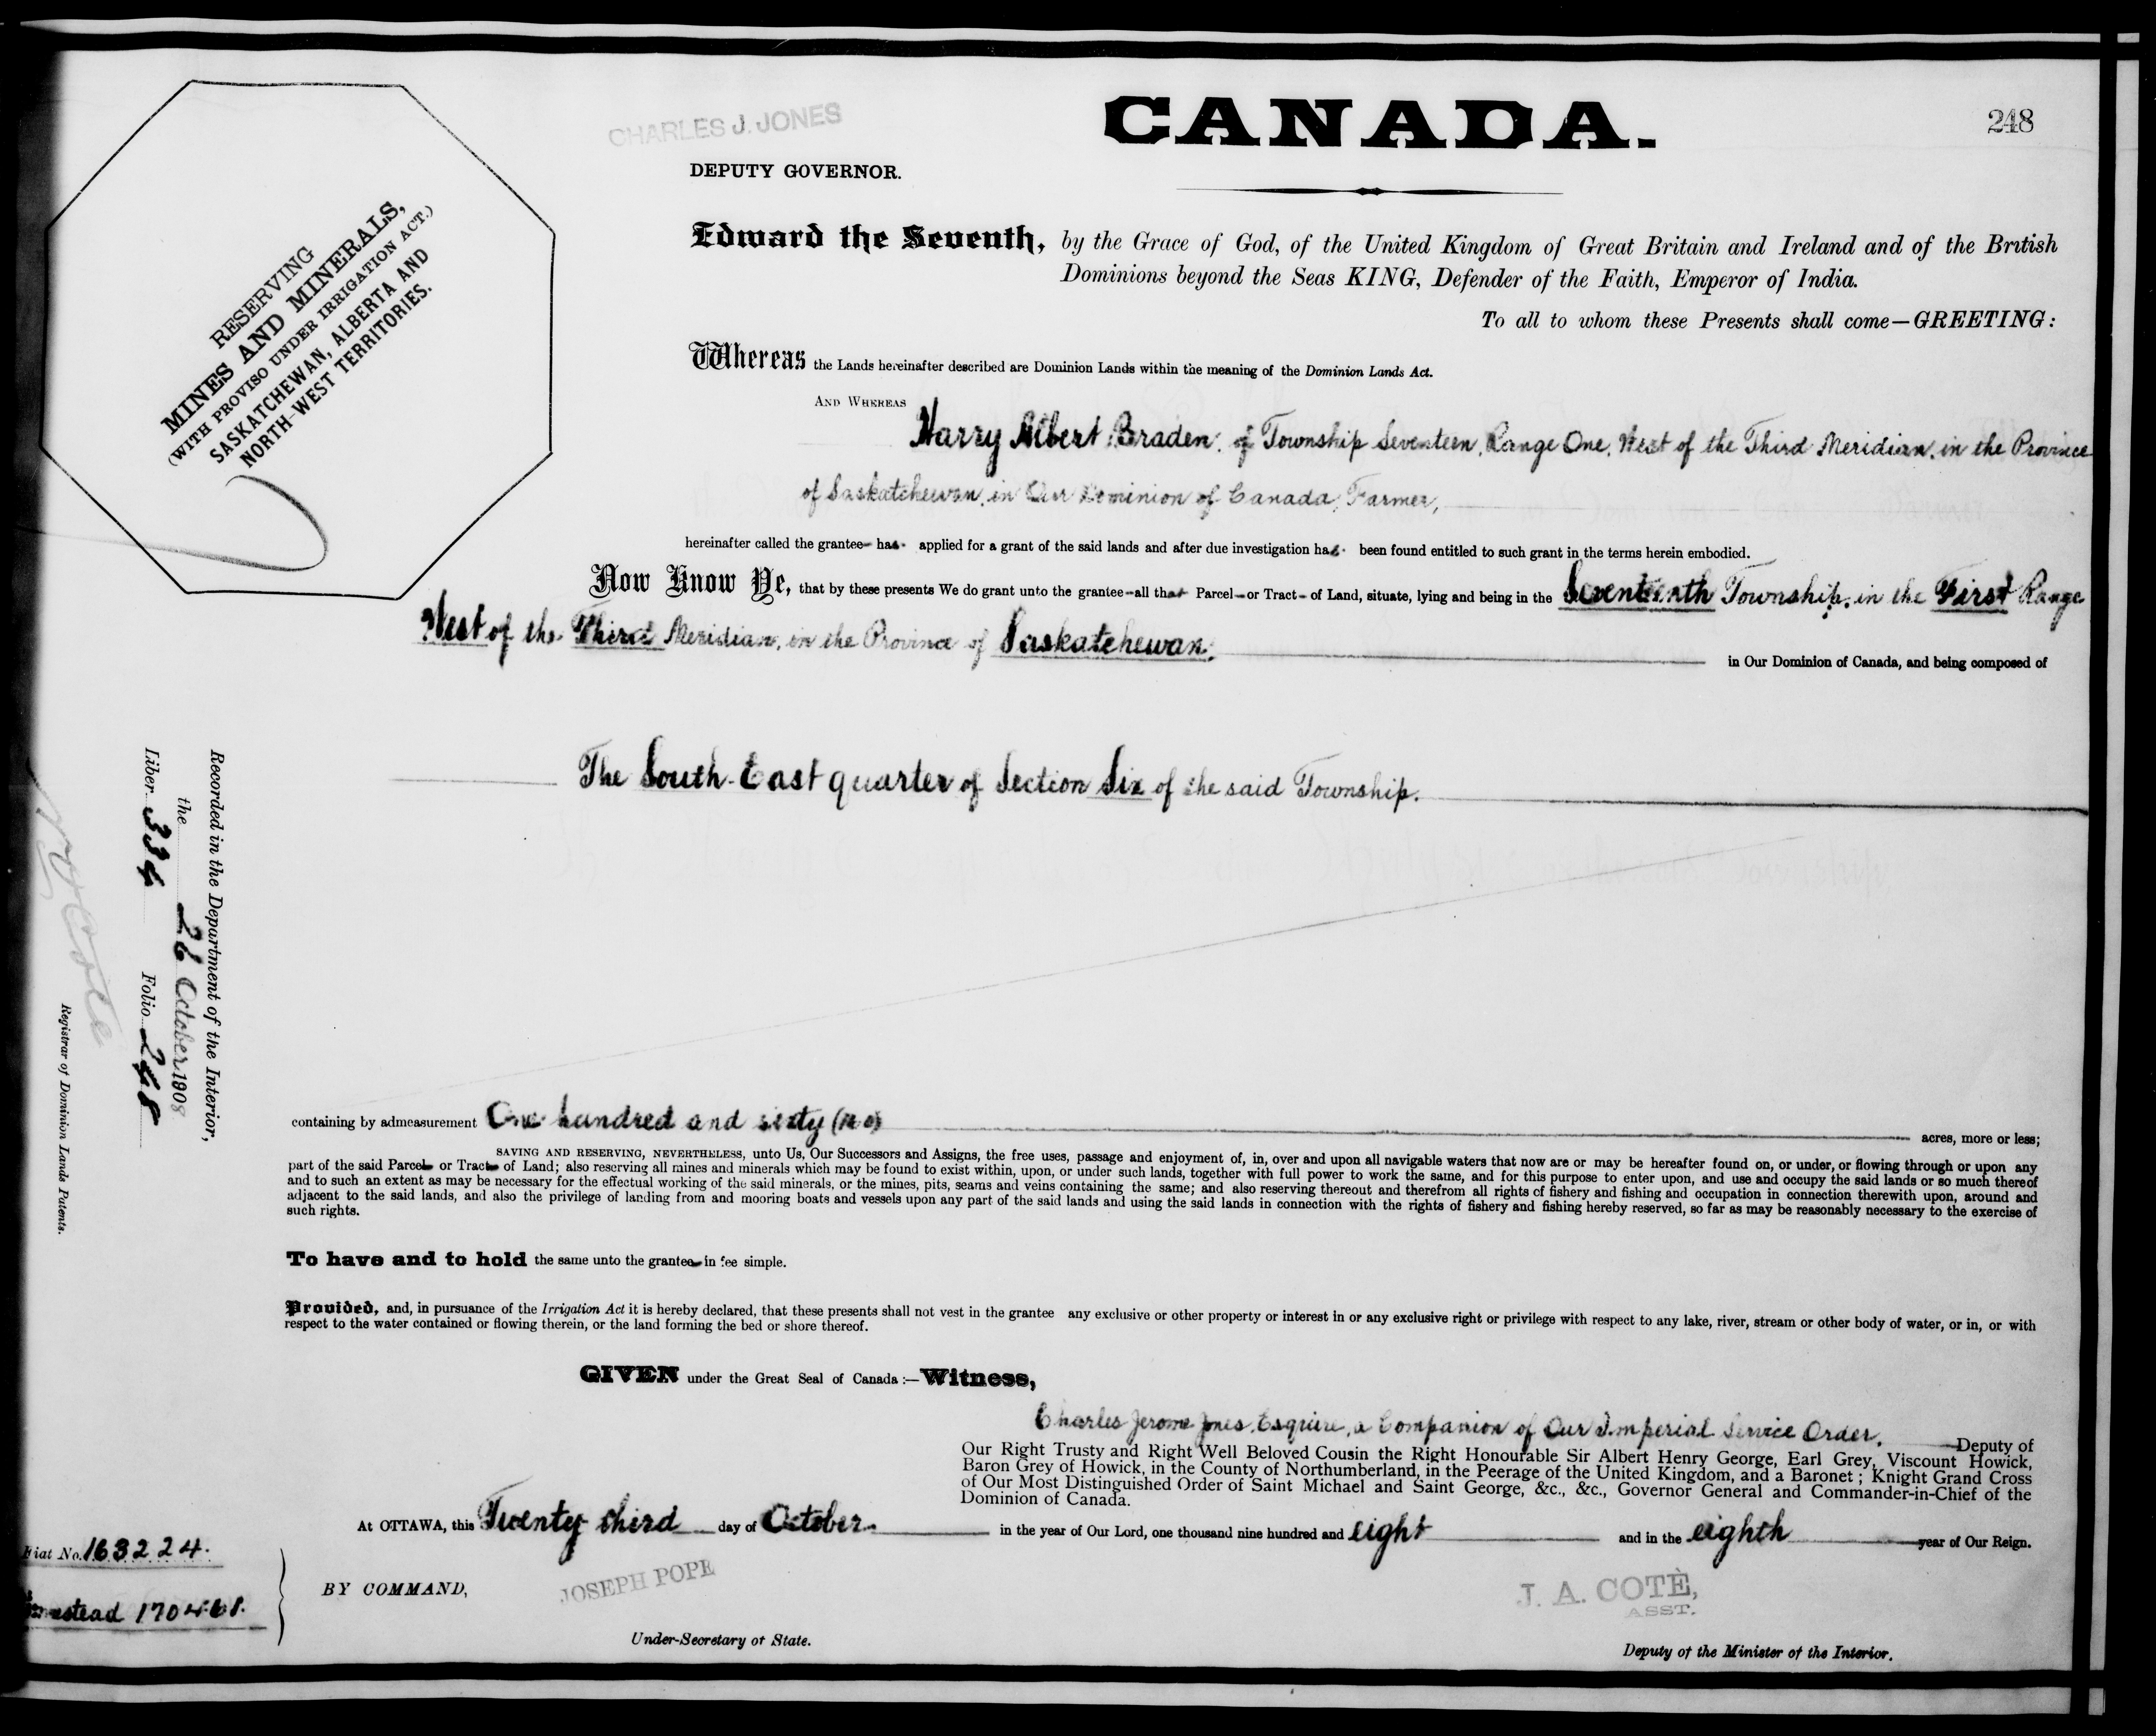 CHARLES J. JONES
DEPUTY GOVERNOR.
CANADA.
248
RESERVING
MINES AND MINERALS,
(WITH PROVISO UNDER IRRIGATION ACT.)
SASKATCHEWAN, ALBERTA AND
NORTH-WEST TERRITORIES.
Edward the Seventh, by the Grace of God, of the United Kingdom of Great Britain and Ireland and of the British
Dominions beyond the Seas KING, Defender of the Faith, Emperor of India.
To all to whom these Presents shall come—GREETING:
Whereas the Lands hereinafter described are Dominion Lands within the meaning of the Dominion Lands Act.
AND WHEREAS
Harry Albert Braden, of Township Seventeen, Range One, West of the Third Meridian, in the Province
of Saskatchewan, in Our Dominion of Canada, Farmer,
hereinafter called the grantee has applied for a grant of the said lands and after due investigation has been found entitled to such grant in the terms herein embodied.
Now Know Ye, that by these presents We do grant unto the grantee all that Parcel or Tract of Land, situate, lying and being in the Seventeenth Township, in the First Range
West of the Third Meridian, in the Province of Saskatchewan,
in Our Dominion of Canada, and being composed of
The South-East quarter of Section Six of the said Township.
containing by admeasurement One hundred and sixty (160) acres, more or less;
SAVING AND RESERVING, NEVERTHELESS, unto Us, Our Successors and Assigns, the free uses, passage and enjoyment of, in, over and upon all navigable waters that now are or may be hereafter found on, or under, or flowing through or upon any
part of the said Parcel or Tract of Land; also reserving all mines and minerals which may be found to exist within, upon, or under such lands, together with full power to work the same, and for this purpose to enter upon, and use and occupy the said lands or so much thereof
and to such an extent as may be necessary for the effectual working of the said minerals, or the mines, pits, seams and veins containing the same; and also reserving thereout and therefrom all rights of fishery and fishing and occupation in connection therewith upon, around and
adjacent to the said lands, and also the privilege of landing from and mooring boats and vessels upon any part of the said lands and using the said lands in connection with the rights of fishery and fishing hereby reserved, so far as may be reasonably necessary to the exercise of
such rights.
To have and to hold the same unto the grantee in fee simple.
Provided, and, in pursuance of the Irrigation Act it is hereby declared, that these presents shall not vest in the grantee any exclusive or other property or interest in or any exclusive right or privilege with respect to any lake, river, stream or other body of water, or in, or with
respect to the water contained or flowing therein, or the land forming the bed or shore thereof.
GIVEN under the Great Seal of Canada:—Witness,
Charles Jerome Jones, Esquire, a Companion of Our Imperial Service Order, Deputy of
Our Right Trusty and Right Well Beloved Cousin the Right Honourable Sir Albert Henry George, Earl Grey, Viscount Howick,
Baron Grey of Howick, in the County of Northumberland, in the Peerage of the United Kingdom, and a Baronet; Knight Grand Cross
of Our Most Distinguished Order of Saint Michael and Saint George, &c., &c., Governor General and Commander-in-Chief of the
Dominion of Canada.
At OTTAWA, this Twenty third day of October in the year of Our Lord, one thousand nine hundred and eight and in the eighth year of Our Reign.
BY COMMAND,
JOSEPH POPE
Under-Secretary of State.
J. A. COTÈ,
ASST.
Deputy of the Minister of the Interior.
Recorded in the Department of the Interior,
the 26 October 1908
Liber 334 Folio 248
Registrar of Dominion Lands Patents.
Fiat No. 163224.